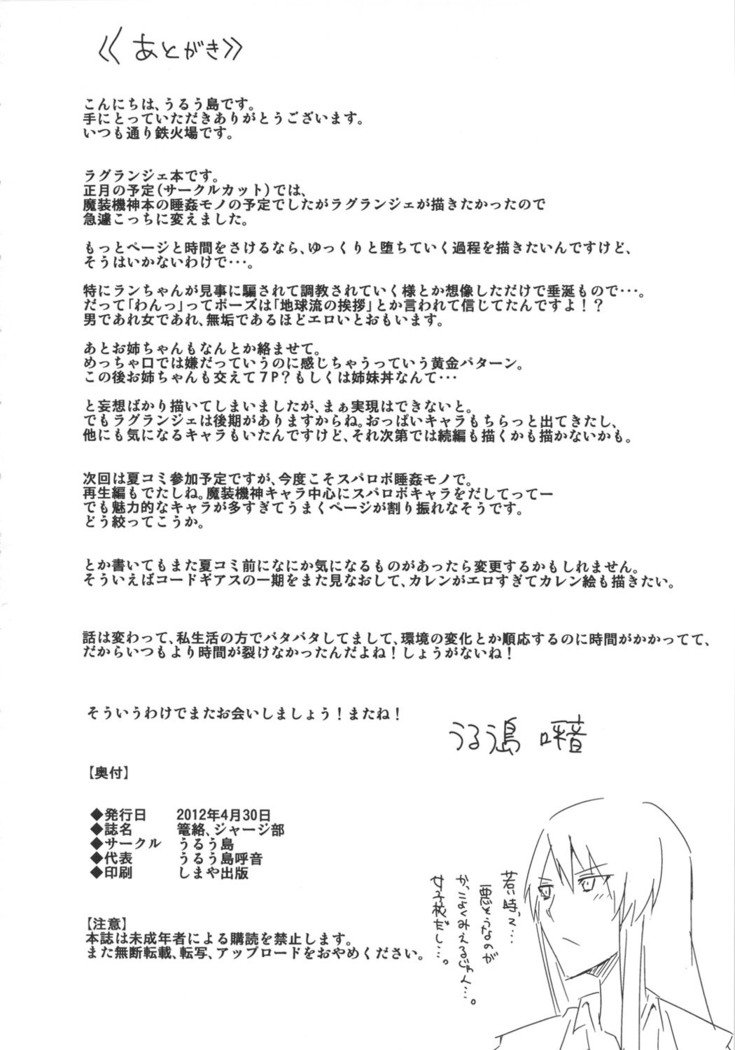 ≪あとがき≫
こんにちは、うるう島です。
手にとっていただきありがとうございます。
いつも通り鉄火場です。
ラグランジェ本です。
正月の予定(サークルカット)では、
魔装機神本の睡姦モノの予定でしたがラグランジェが描きたかったので
急遽こっちに変えました。
もっとページと時間をさけるなら、ゆっくりと堕ちていく過程を描きたいんですけど、
そうはいかないわけで・・・。
特にランちゃんが見事に騙されて調教されていく様とか想像しただけで垂涎もので・・・。
だって「わんっ」ってポーズは「地球流の挨拶」とか言われて信じてたんですよ!?
男であれ女であれ、無垢であるほどエロいとおもいます。
あとお姉ちゃんもなんとか絡ませて。
めっちゃ口では嫌だっていうのに感じちゃうっていう黄金パターン。
この後お姉ちゃんも交えて7P?もしくは姉妹丼なんて・・・
と妄想ばかり描いてしまいましたが、まぁ実現はできないと。
でもラグランジェは後期がありますからね。おっぱいキャラもちらっと出てきたし、
他にも気になるキャラもいたんですけど、それ次第では続編も描くかも描かないかも。
次回は夏コミ参加予定ですが、今度こそスパロボ睡姦モノで。
再生編もでたしね。魔装機神キャラ中心にスパロボキャラをだしてってー
でも魅力的なキャラが多すぎてうまくページが割り振れなそうです。
どう絞ってこうか。
とか書いてもまた夏コミ前になにか気になるものがあったら変更するかもしれません。
そういえばコードギアスの一期をまた見なおして、カレンがエロすぎてカレン絵も描きたい。
話は変わって、私生活の方でバタバタしてまして、環境の変化とか順応するのに時間がかかってて、
だからいつもより時間が裂けなかったんだよね!しょうがないね!
そういうわけでまたお会いしましょう!またね!
うるう島 呼音
【奥付】
◆発行日 2012年4月30日
◆誌名 篭絡、ジャージ部
◆サークル うるう島
◆代表 うるう島呼音
◆印刷 しまや出版
【注意】
本誌は未成年者による購読を禁止します。
また無断転載、転写、アップロードをおやめください。
若い時って…
女子校だし…。